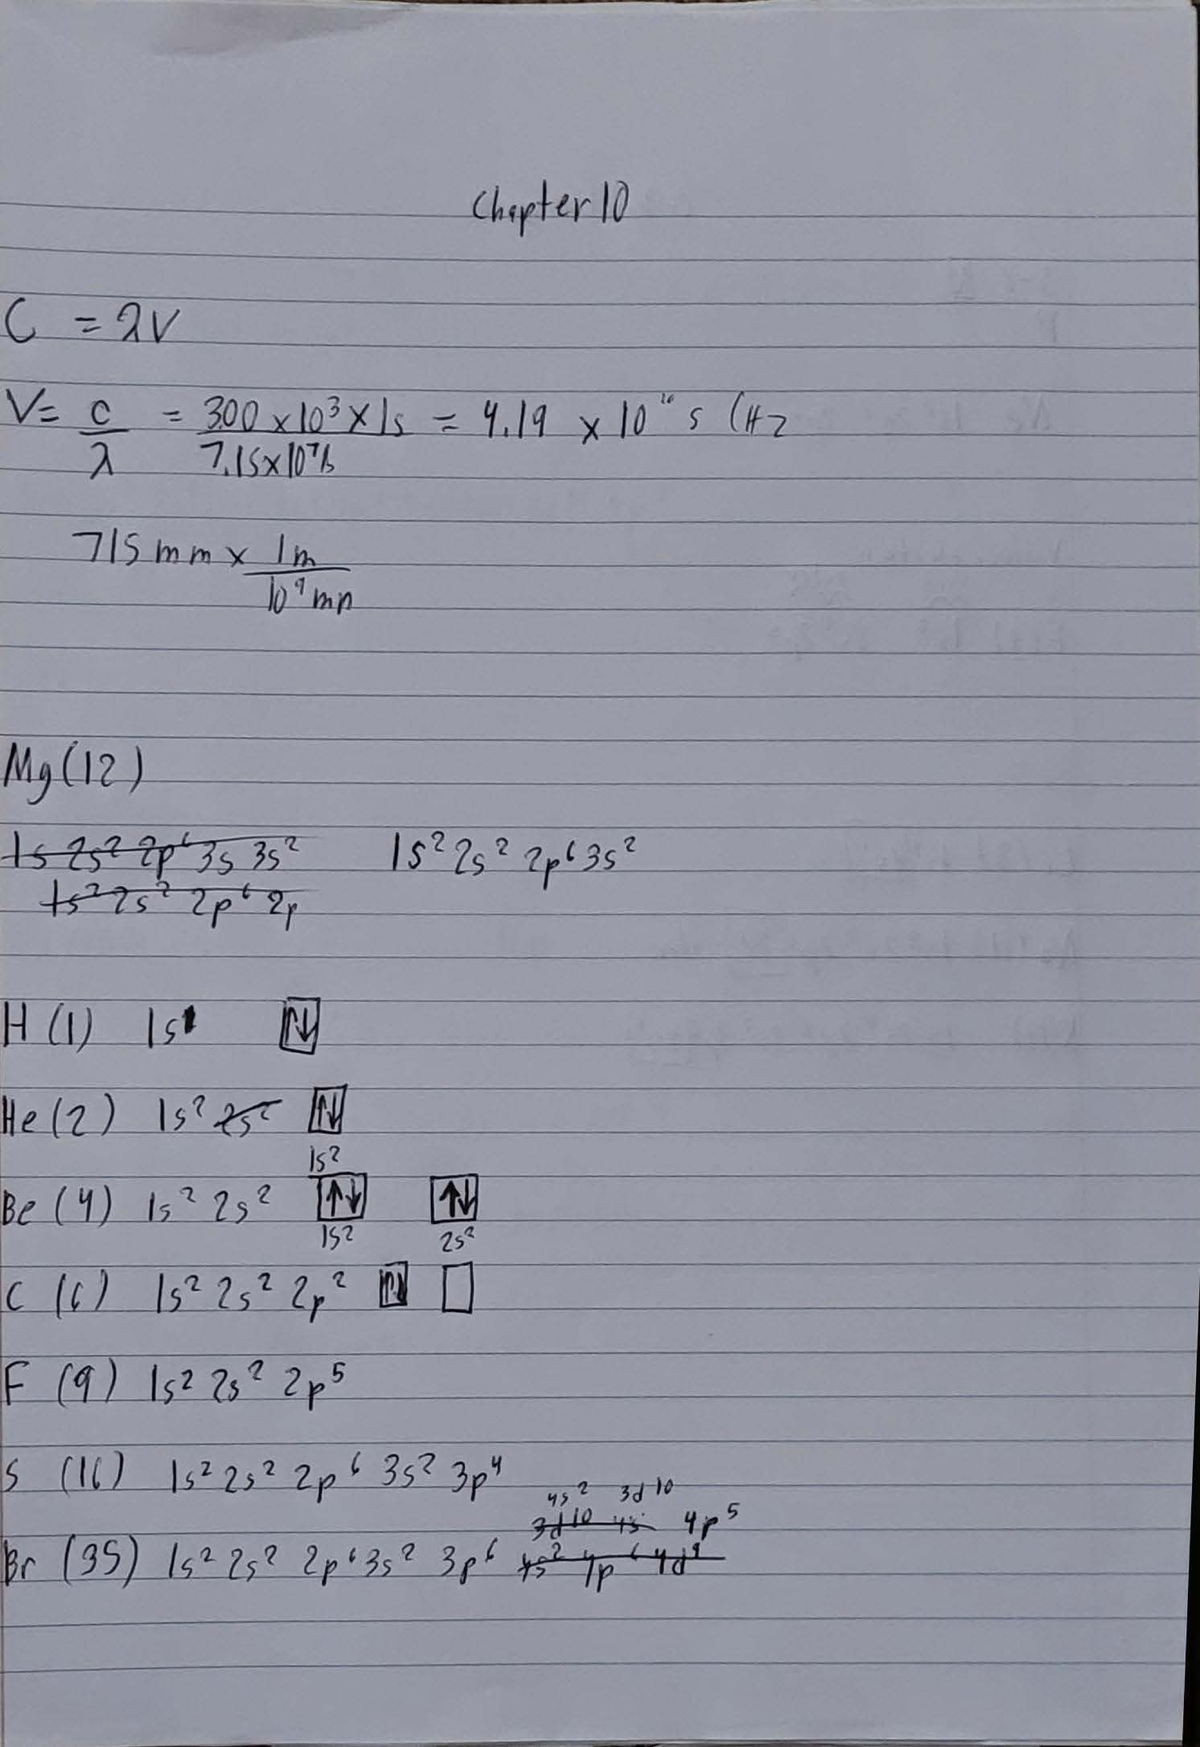 Chapter 10
C = λV
V = c/λ = 300 x 10³ x 1s / 7.15 x 10⁷/s = 4.19 x 10 s (Hz
715 mm x 1m / 10⁹ mn
Mg (12)
1s 2s² 2p⁶ 3s 3s² 1s² 2s² 2p⁶ 3s²
1s² 2s² 2p⁶ 2p
H (1) 1s¹ ↑↓
He (2) 1s² 2s² ↑↓
1s²
Be (4) 1s² 2s² ↑↓ ↑↓
1s² 2s²
C (6) 1s² 2s² 2p² ↑↓
F (9) 1s² 2s² 2p⁵
S (16) 1s² 2s² 2p⁶ 3s² 3p⁴
4s² 3d10
3d10 4s 4p⁵
Br (35) 1s² 2s² 2p⁶ 3s² 3p⁶ 4s² 4p⁶ 4d⁹